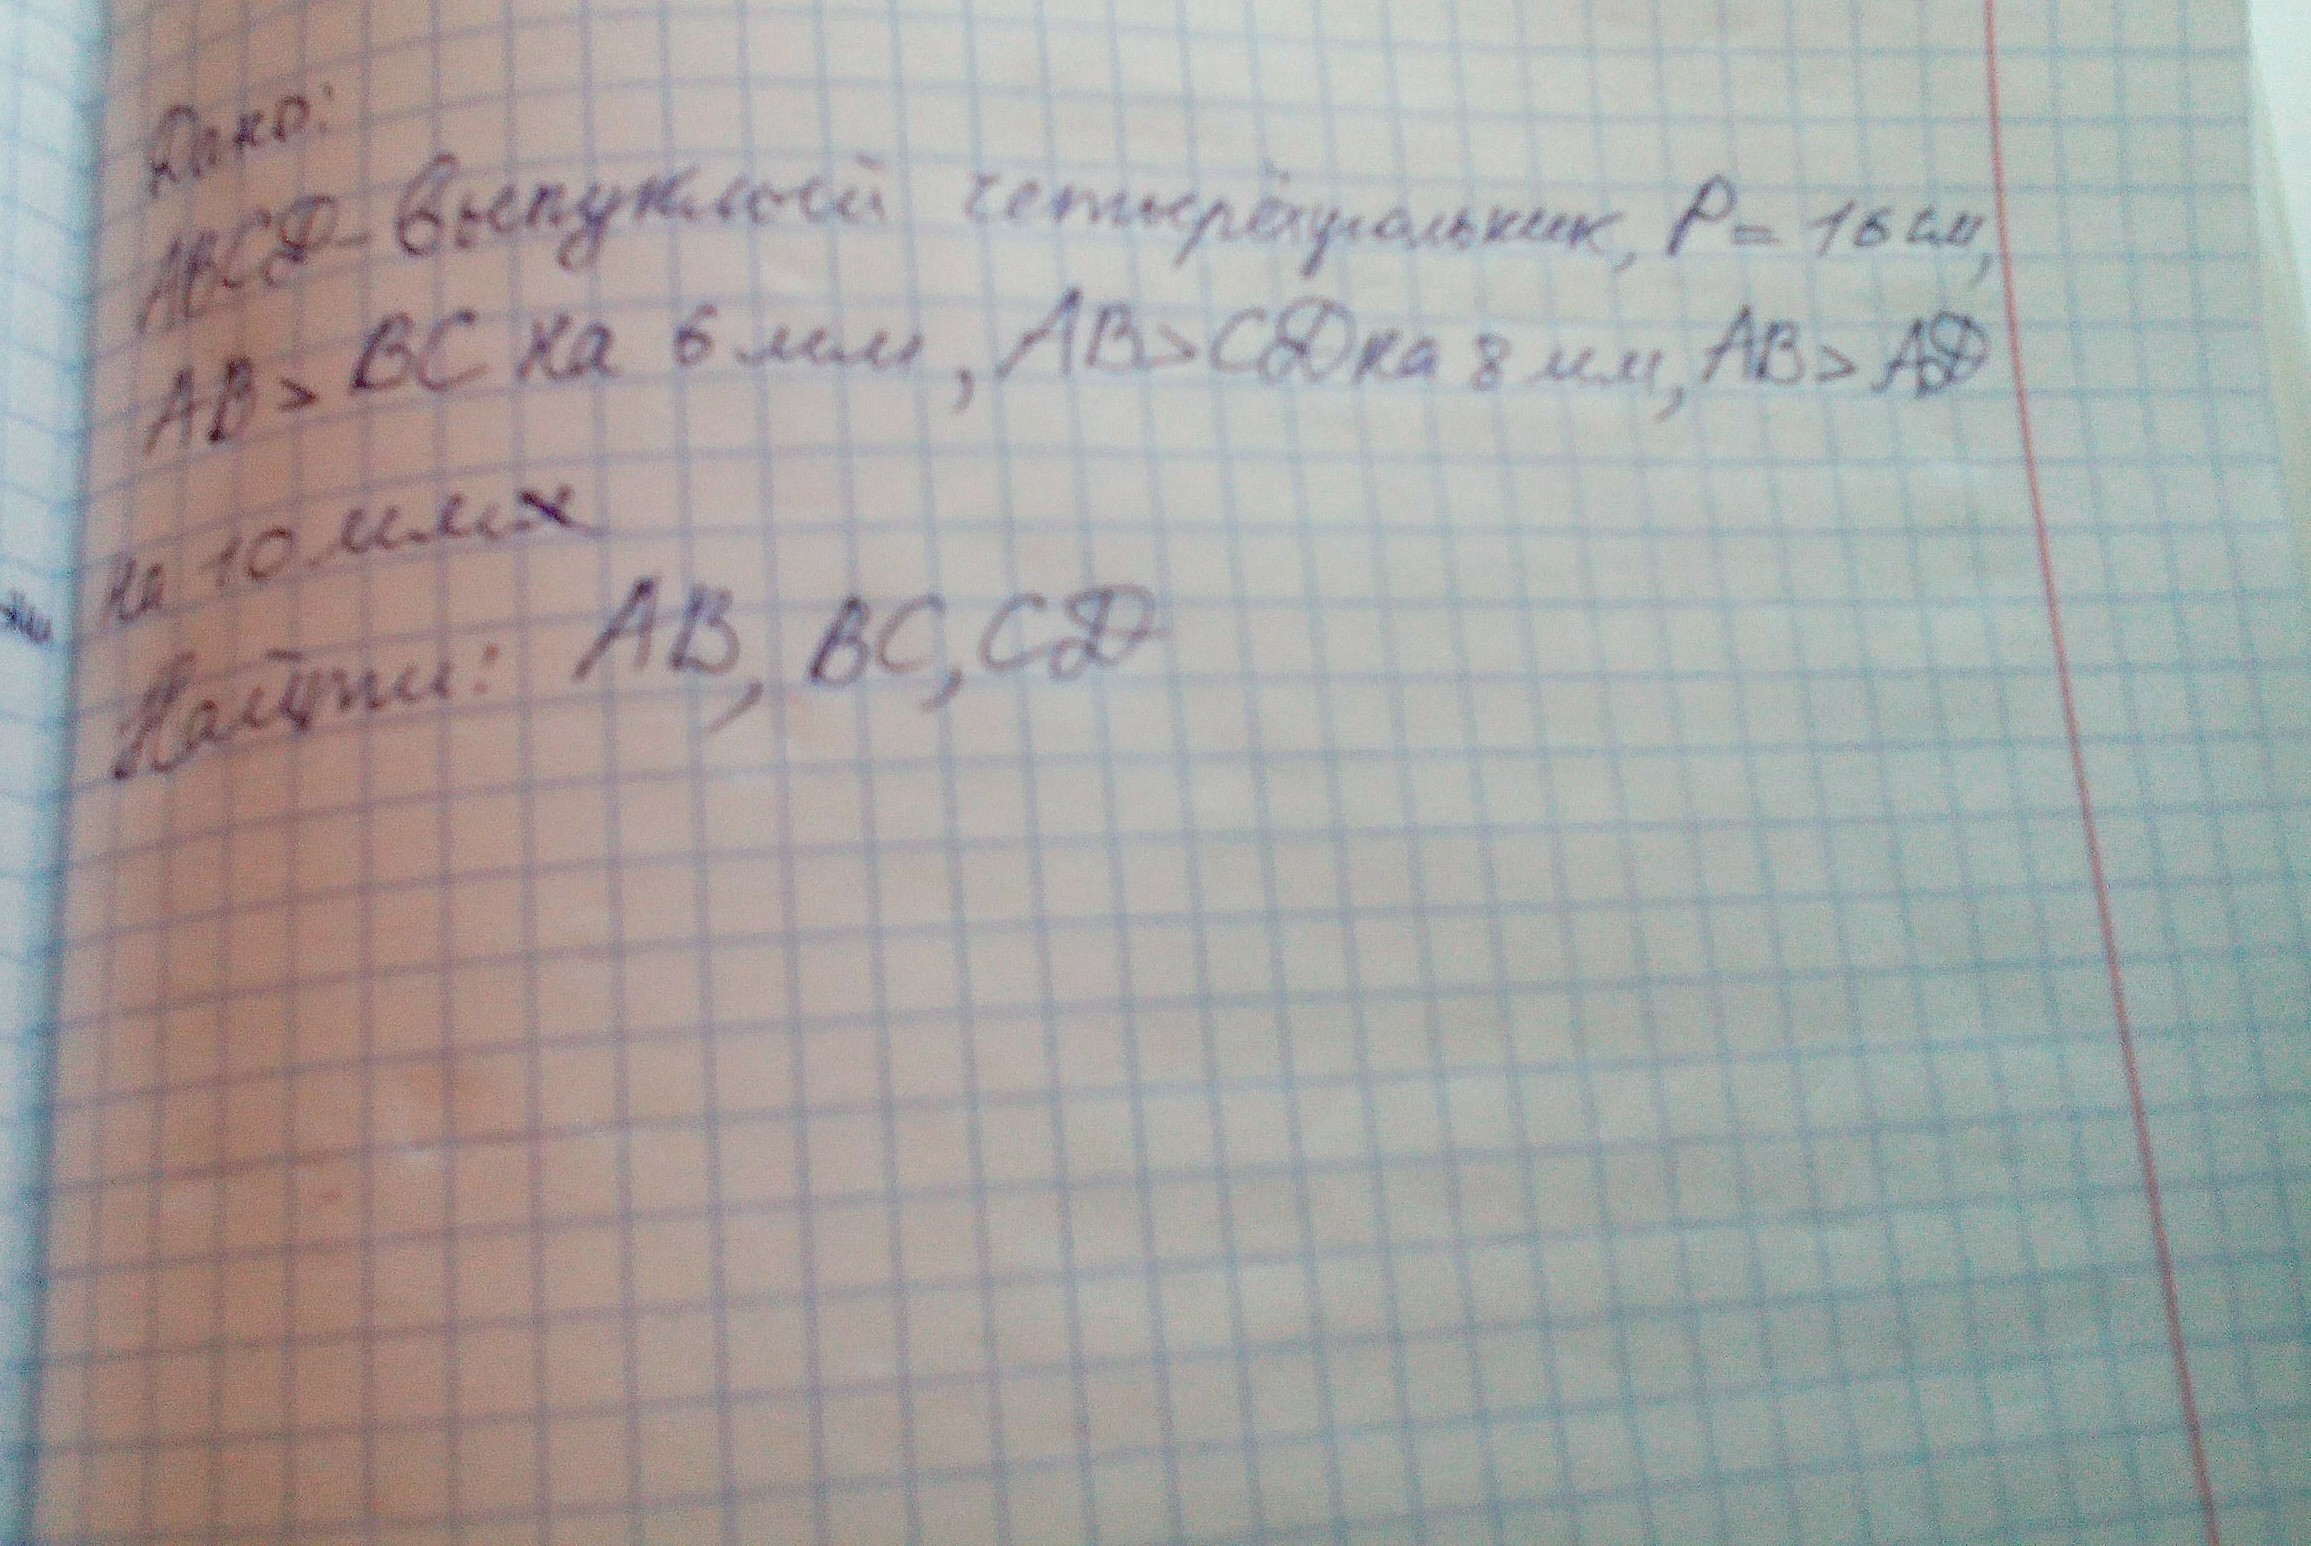 Дано:
ABCD - выпуклый четырёхугольник, P = 16 см,
AB > BC на 6 мм, AB > CD на 8 мм, AB > AD
на 10 мм
Найти: AB, BC, CD